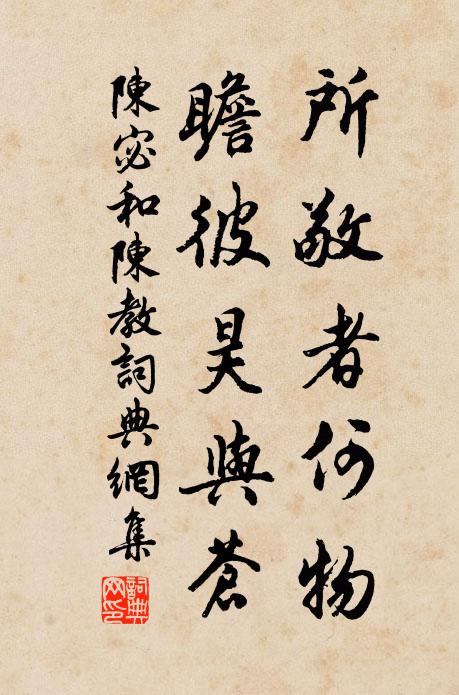 所敬者何物
瞻彼昊與蒼
陳宓和陳教詞典網集
詞典網印